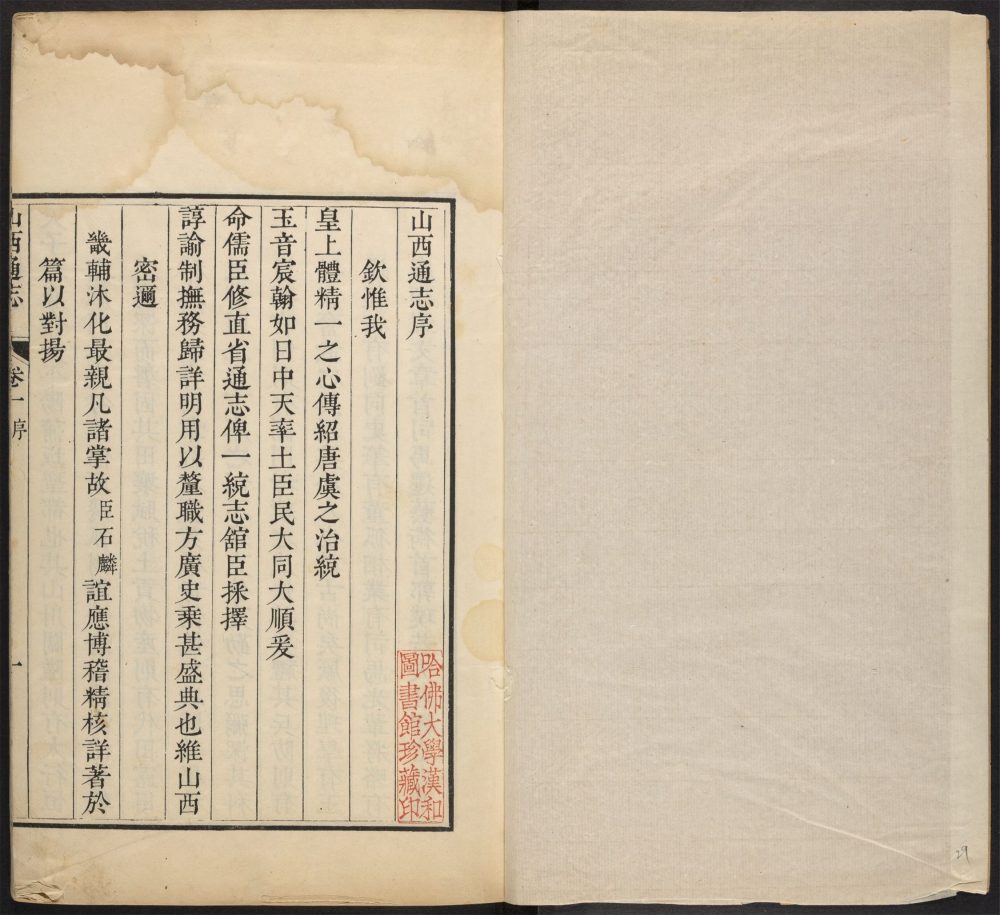 山西通志序
欽惟我
皇上體精一之心傳紹唐虞之治統
玉音宸翰如日中天率土臣民大同大順爰
命儒臣修直省通志俾一統志舘臣採擇
諄諭制撫務歸詳明用以釐職方廣史乘甚盛典也維山西
密邇
畿輔沐化最親凡諸掌故臣石麟誼應博稽精核詳著於
篇以對揚
山西通志
卷一序
一
哈佛大學漢和
圖書館珍藏印
29